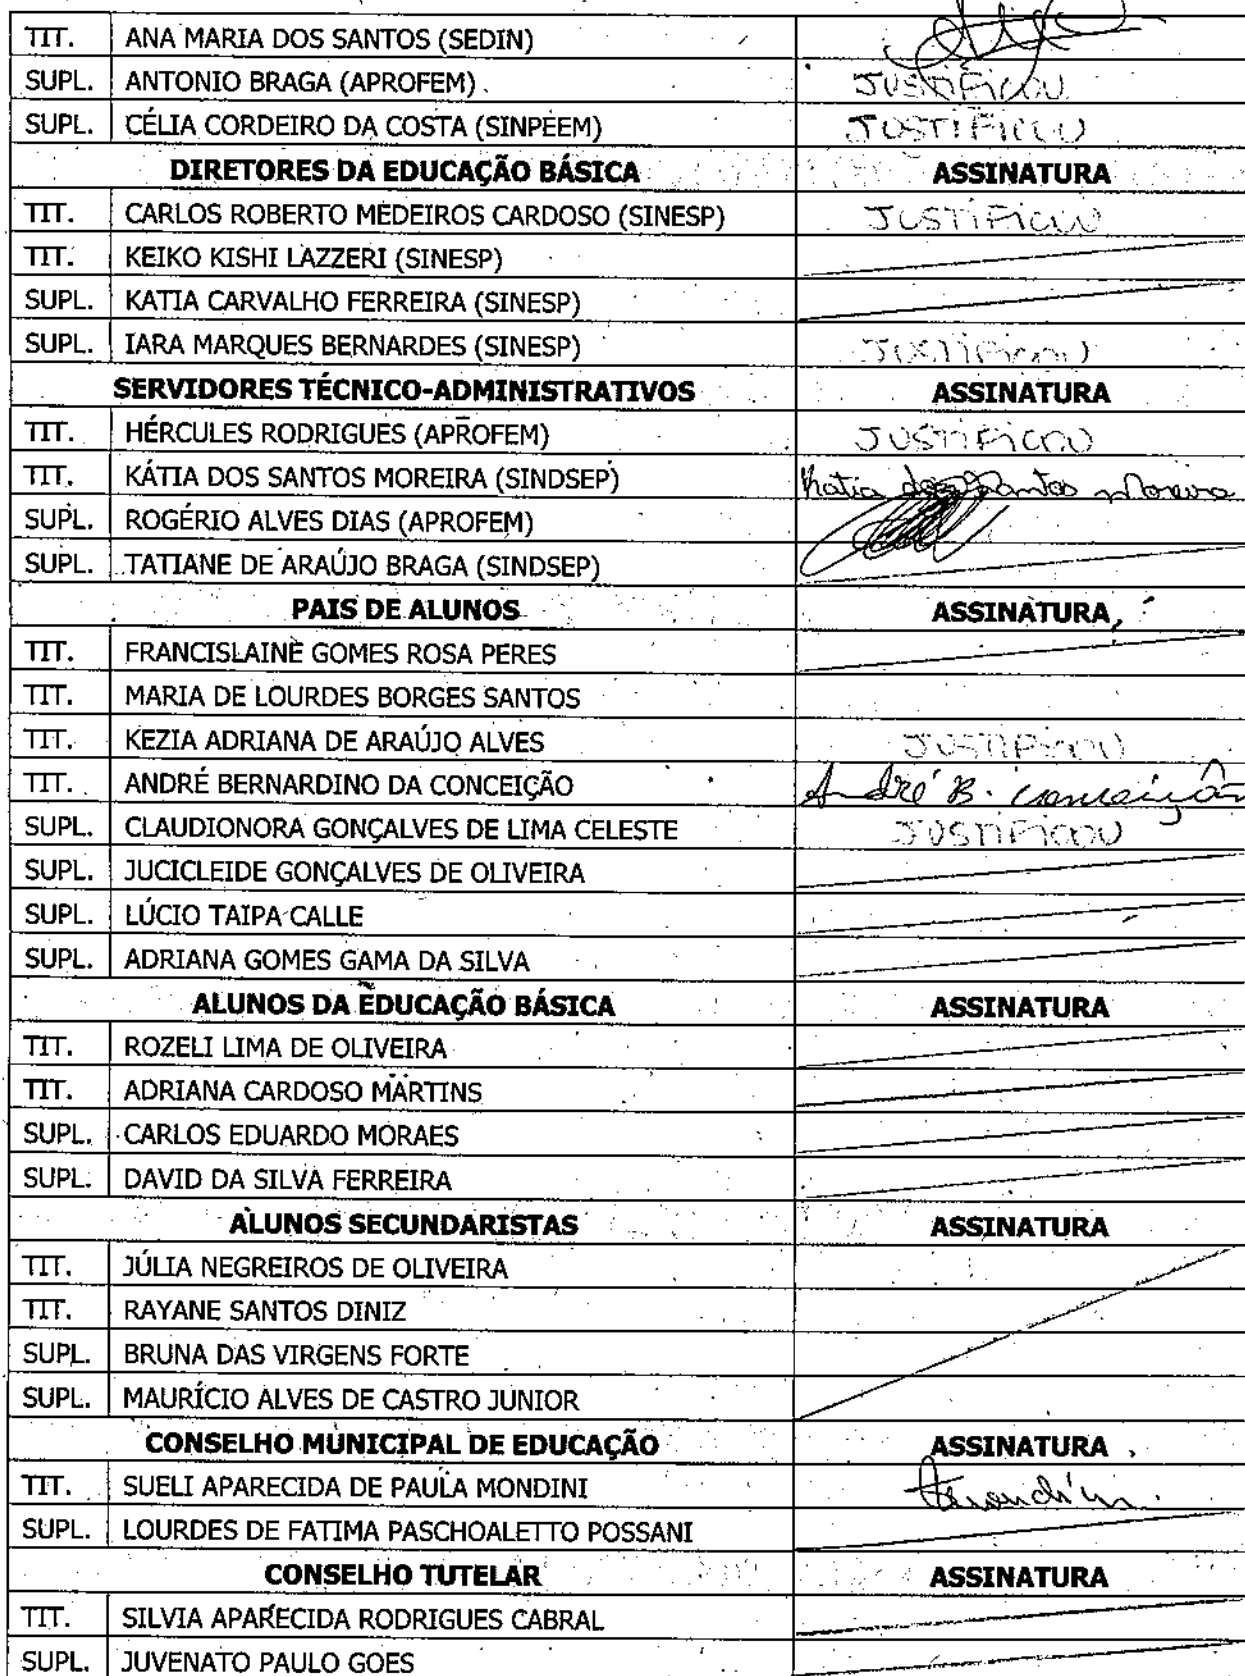 TIT. ANA MARIA DOS SANTOS (SEDIN)
SUPL. ANTONIO BRAGA (APROFEM) JUSTIFICOU
SUPL. CÉLIA CORDEIRO DA COSTA (SINPEEM) JUSTIFICOU
DIRETORES DA EDUCAÇÃO BÁSICA ASSINATURA
TIT. CARLOS ROBERTO MEDEIROS CARDOSO (SINESP) JUSTIFICOU
TIT. KEIKO KISHI LAZZERI (SINESP)
SUPL. KATIA CARVALHO FERREIRA (SINESP)
SUPL. IARA MARQUES BERNARDES (SINESP) JUSTIFICOU
SERVIDORES TÉCNICO-ADMINISTRATIVOS ASSINATURA
TIT. HÉRCULES RODRIGUES (APROFEM) JUSTIFICOU
TIT. KÁTIA DOS SANTOS MOREIRA (SINDSEP) Katia dos Santos Moreira
SUPL. ROGÉRIO ALVES DIAS (APROFEM)
SUPL. TATIANE DE ARAÚJO BRAGA (SINDSEP)
PAIS DE ALUNOS ASSINATURA
TIT. FRANCISLAINE GOMES ROSA PERES
TIT. MARIA DE LOURDES BORGES SANTOS
TIT. KEZIA ADRIANA DE ARAÚJO ALVES JUSTIFICOU
TIT. ANDRÉ BERNARDINO DA CONCEIÇÃO André B. Conceição
SUPL. CLAUDIONORA GONÇALVES DE LIMA CELESTE JUSTIFICOU
SUPL. JUCICLEIDE GONÇALVES DE OLIVEIRA
SUPL. LÚCIO TAIPA CALLE
SUPL. ADRIANA GOMES GAMA DA SILVA
ALUNOS DA EDUCAÇÃO BÁSICA ASSINATURA
TIT. ROZELI LIMA DE OLIVEIRA
TIT. ADRIANA CARDOSO MARTINS
SUPL. CARLOS EDUARDO MORAES
SUPL. DAVID DA SILVA FERREIRA
ALUNOS SECUNDARISTAS ASSINATURA
TIT. JÚLIA NEGREIROS DE OLIVEIRA
TIT. RAYANE SANTOS DINIZ
SUPL. BRUNA DAS VIRGENS FORTE
SUPL. MAURÍCIO ALVES DE CASTRO JUNIOR
CONSELHO MUNICIPAL DE EDUCAÇÃO ASSINATURA
TIT. SUELI APARECIDA DE PAULA MONDINI
SUPL. LOURDES DE FATIMA PASCHOALETTO POSSANI
CONSELHO TUTELAR ASSINATURA
TIT. SILVIA APARECIDA RODRIGUES CABRAL
SUPL. JUVENATO PAULO GOES